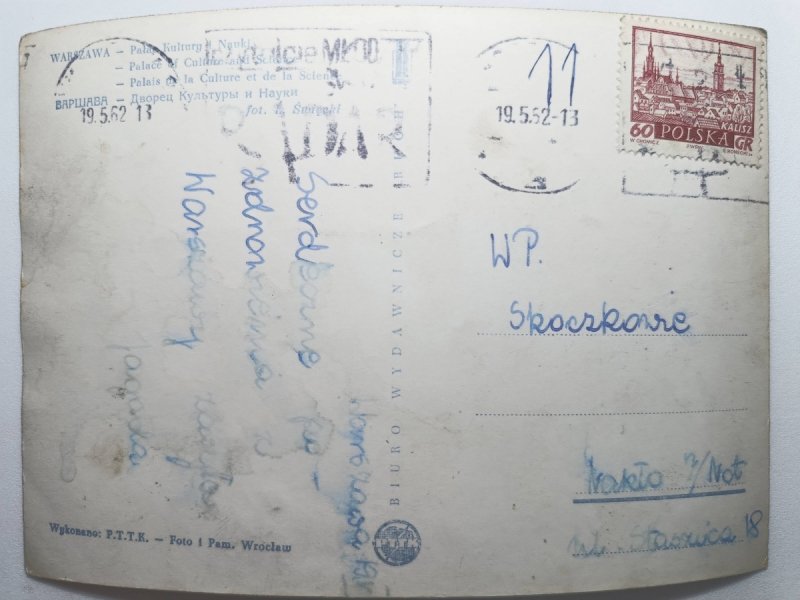 WARSZAWA – Pałac Kultury i Nauki
– Palace of Culture and Science
– Palais de la Culture et de la Science
ВАРШАВА – Дворец Культуры и Науки
fot.
19.5.62 13
MŁOD
11
19.5.62-13
KALISZ
60 POLSKA GR
BIURO WYDAWNICZE RUCH
Warszawa
Serdeczne po-
zdrowienia z
Warszawy
Jagoda
WP.
Skoczkowie
Nakło n/Not
ul. Staszica 18
Wykonano: P.T.T.K. – Foto i Pam. Wrocław